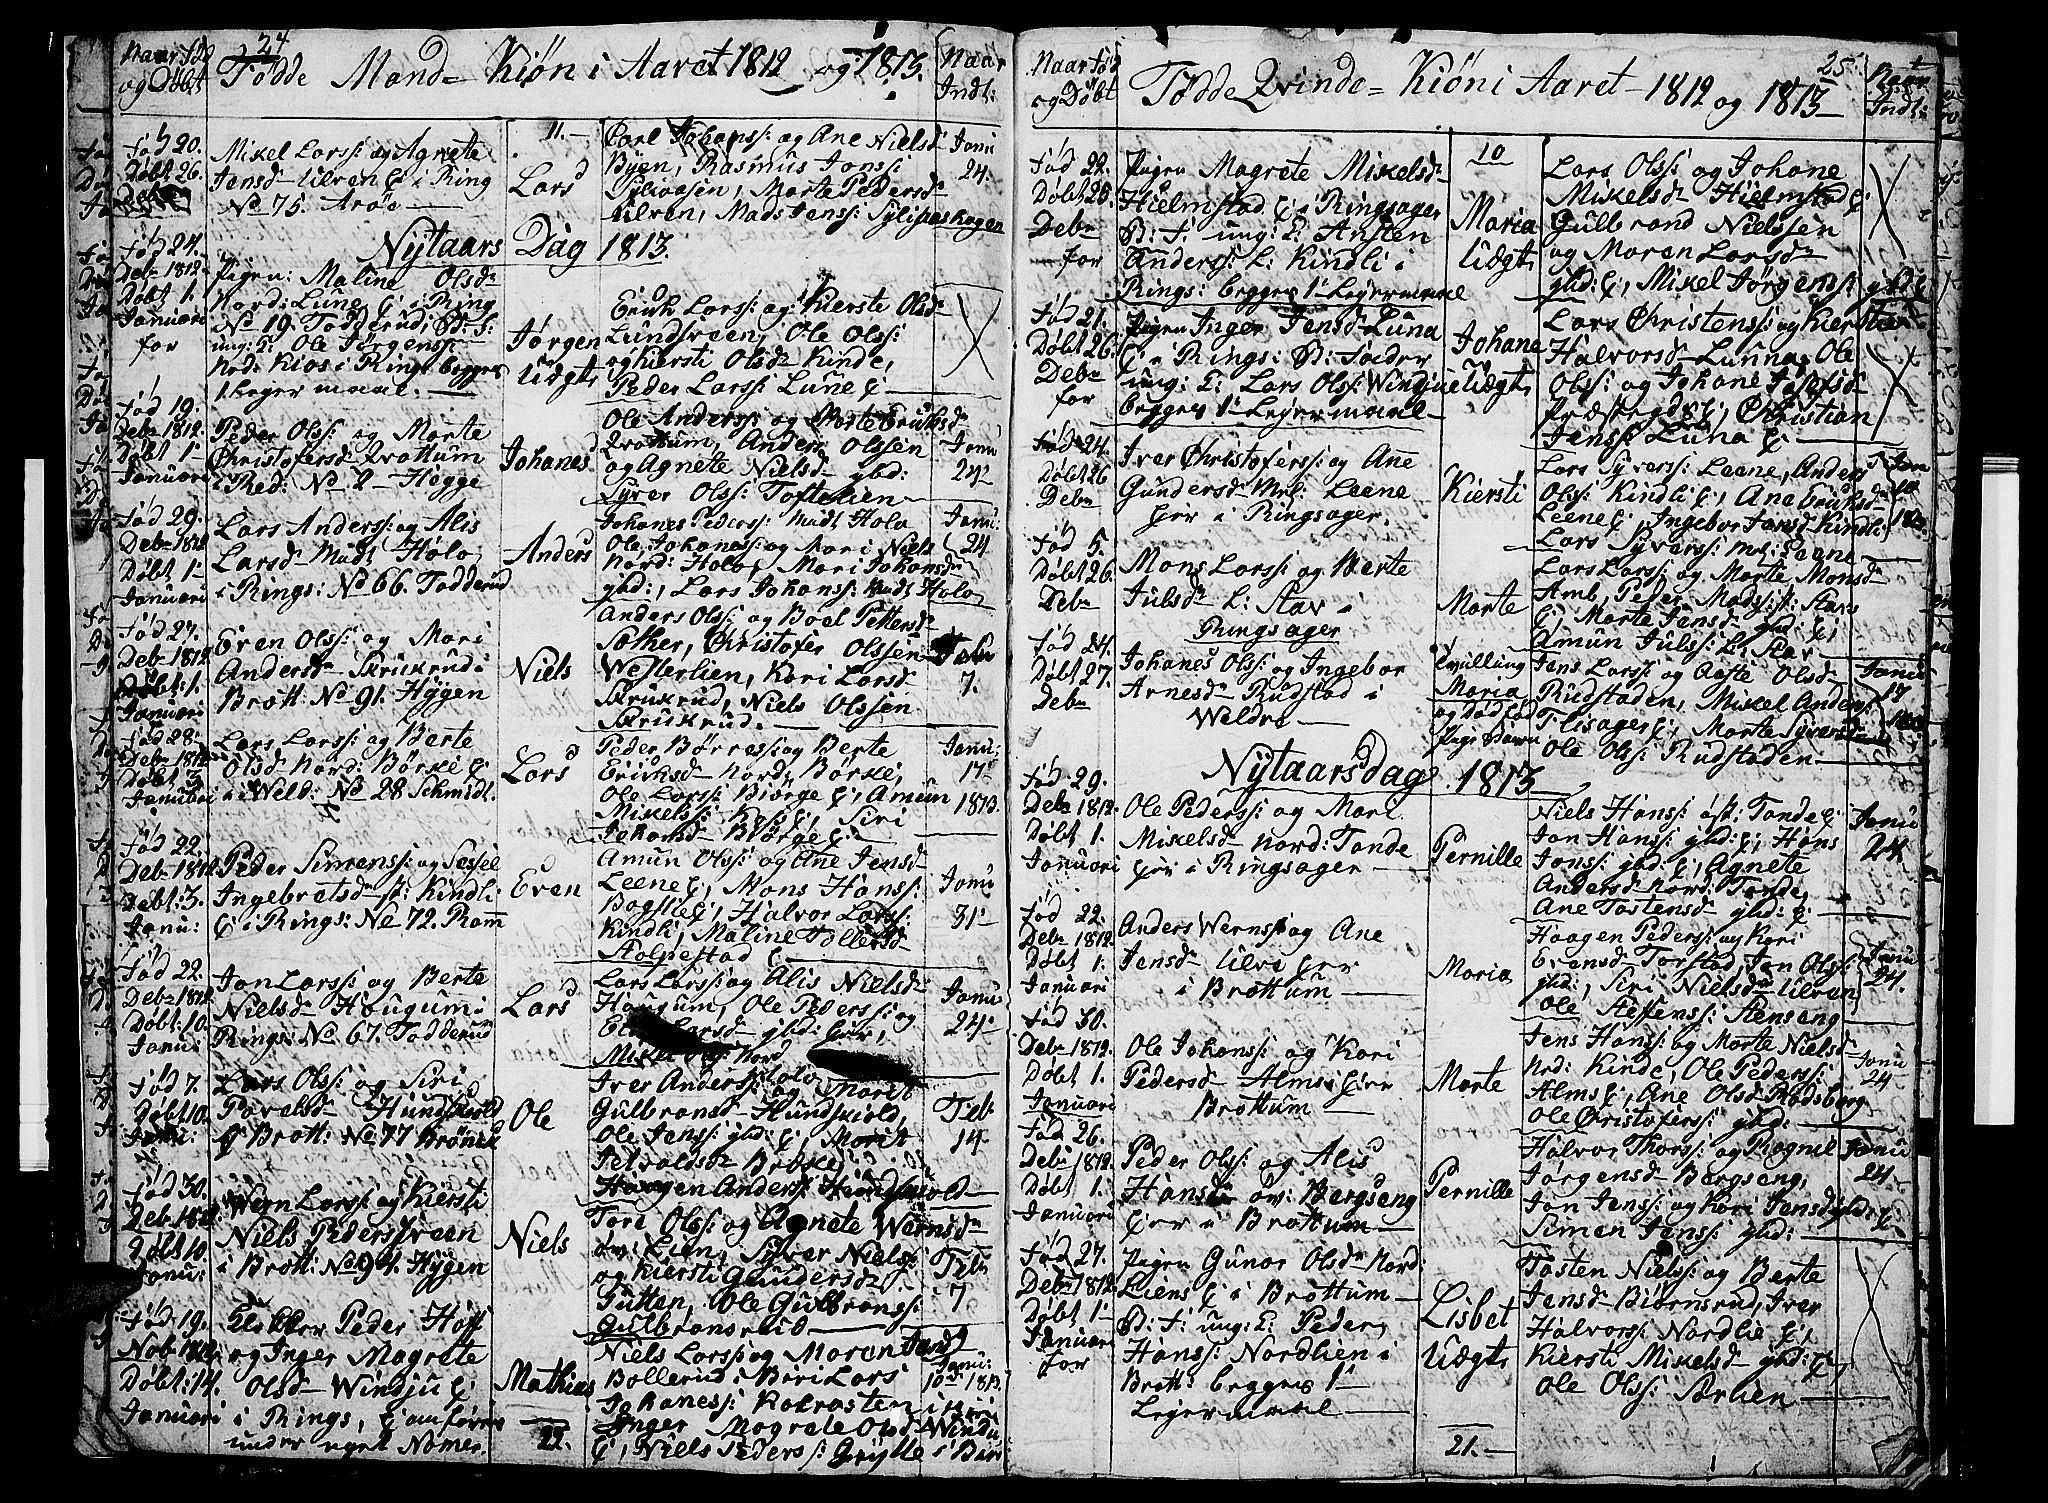 24
Naar Fød
og Døbt
Fødde Mand= Kiøn i Aaret 1812 og 1813.
Naar
Indl:
Fød 20.
Døbt 26.
Mikel Larss: og Agnete
Jensd= Ulven E: i Ring
No 75. Aröe
11.
Lars
Carl Johanss: og Ane Nielsd
Byen, Rasmus Jonss:
Marte Pedersd=
Ulven, Mads Jenss:
Janu
24.
Nytaars Dag 1813.
Fød 24.
Debr 1812
Døbt 1.
Januari
for
Pigen: Maline Olsd=
Nord: Lune E: i Ring
No 19. Fodderud, B: F:
ung: E: Ole Jørgenss:
Ned: Kios i Ring: begges
1. Leyermaal.
Jørgen
Uægt
Erich Larss: og Kierste Olsd=
Lundsveen, Ole Olss:
og Kiersti Olsd= Kinde,
Peder Larss: Lune E:
Fød 19.
Debr 1812.
Døbt 1
Januari
Peder Olss: og Marte
Christofersd= Brottum
i Red: No 2 Hegge
Johanes
Ole Anderss: og Marte Erichsd=
Brottum, Anders Olssen
og Agnete Nielsd= ybd:
Syver Olss: Toftelien
Janu
24
Fød 29.
Debr 1812
Døbt 1
Januari
Lars Anderss: og Alis
Larsd= Madt Holo
i Rings: No 66. Fodderud
Anders
Johanes Pederss: Madt Holo
Ole Johaness: og Mari Niels
Nord: Holo, Mari Johansd=
ybd:, Lars Johanss: Madt Holo
Janu:
24
Fød 27.
Debr 1812
Døbt: 1.
Januari
Even Olss: og Mari
Andersd= Skrukrud i
Brott: No 91. Hygen
Niels
Anders Olss: og Boel Pettersd=
Sæther, Christofer Olssen
Westerlien, Kari Larsd=
Skrukrud, Niels Olssen
Skrukrud.
7.
Fød 28:
Debr 1812
Døbt 3.
Januari
Lars Larss: og Berte
Olsd= Nord: Børke E:
i Weld: No 28 Schmidt.
Lars
Peder Børress: og Berte
Ericksd= Nord, Børke,
Ole Larss: Biørge E:, Amun
Mikelss: Siri
Johansd= Børge E:
Janu:
17
1813.
Fød 22.
Debr 1812
Døbt: 3.
Janu:
Peder Simenss: og Sessel
Ingebretsd= st: Kindli
E: i Rings: No 72. Ram
Even
Amun Olss: og Ane Jensd=
Leene E:, Mons Hanss:
Bagslie E:, Halvor Larss:
Kindli, Maline Tollersd=
Stolpestad E:
Janu
31
Fød 22.
Debr 1812
Døbt: 10.
Janu:
Jon Larss: og Berte
Nielsd= Hougum i
Rings: No 67. Fodderud
Lars
Lars Larss: og Alis Nielsd=
Hougum, Ole Pederss: og
Larsd= ybd: Eier,
Mikel Olss: Nord
Holo
Janu
24
Fød 7.
Døbt 10.
Janu:
Lars Olss: og Siri
Povelsd= Hundskiold
E Brott: No 77 Brönlie
Ole
Iver Anderss: Marit
Gulbransd= Hundskiold,
Ole Jenss: ybd: E:, Marit
Børke,
Haagen Anderss: Hundskiold
Feb:
14
Fød 30.
Debr 1812
Døbt 10.
Janu:
Wern Larss: og Kiersti
Niels Peders
i Brott: No 94. Hygen
Niels
Tore Olss: og Agnete Wernsd=
öv: Lien, Syver Nielss:
og Kiersti Gundersd=
Tutten, Ole Gulbranss:
Gulbransrud
Feb:
7
Fød 19.
Nob: 1812.
Døbt: 14.
Januari
Klokker Peder Höst
og Inger Magrete
Olsd= Windju E:
i Rings, E: anføres
under eget Nomer.
Mathias
22.
Niels Larss: og Maren
Bollerud i Biri Lars
Johaness: Kolvosten i
Inger Magrete Olsd= Windju
E:, Niels Pederss: Grytte i Biri
Janu:
1813.
25.
Naar Fød
og Døbt
Fødde Qvinde= Kiøn i Aaret 1812 og 1813
Naar
Indl:
Fød 22.
Døbt 25.
Debr
for
Pigen Magrete Mikelsd=
Hielmstad E: i Ringsager
B: F: ung: E: Arsten
Anderss: L: Kindli i
Rings: begges 1te Leyermaal
10
Maria
Uægt
Lars Olss: og Johane
Mikelsd= Hielmstad E:
Gulbrand Nielssen
og Maren Larsd=
ybd: E:, Mikel Jørgenss: ybd: E:
Fød 21.
Døbt 26.
Debr
for
Pigen Inger Jensd= Luna
E: i Rings: B: Fader
ung: E: Lars Olss: Windjue
begges 1te Leyermaal
Johane
Uægt
Lars Christenss: og Kiersti
Halvorsd= Lunna, Ole
Olss: og Johane Josefsd=
Præstegd E:, Christian
Jenss: Luna E:
Fød 24.
Døbt 26
Debr
Iver Christoferss: og Ane
Gundersd= Mel: Leene
Eier i Ringsager.
Kiersti
Lars Syverss: Leene, Anders
Olss: Kindli E:, Ane Erichsd=
Leene E:, Ingebor Jansd= Kindli
Lars Syverss: Mel: Leene
Jan
Fød 5.
Døbt 26.
Debr
Mons Larss: og Marte
Julsd= L: Stav i
Ringsager
Marte
Lars Larss: og Marte Monsd=
Amb, Peder Madss: st: Stav
E:, Marte Jensd= ybd: E:,
Amun Julss: L: Stav
Fød 24.
Døbt 27.
Debr
Johanes Olss: og Ingebor
Arnesd= Rudstad i
Weldre
Tvilling
Maria
og Dødfød
Pige Barn
Jens Larss: og Aaste Olsd=
Rudstaden, Mikel Anderss:
Flisager E:, Marte Syversd=
Ole Olss: Rudstaden.
Janu
17
Nytaarsdag 1813
Fød 29.
Debr 1812
Døbt 1.
Januari
Ole Pederss: og Mari
Mikelsd= Nord: Tande
Eier i Ringsager
Pernille
Niels Hanss: öst: Tande E:
Jan Hanss: ybd: E:, Hans
Jonss: ybd: E:, Agnete
Andersd= Nord: Tande,
Ane Tostensd= ybd: E:
Janu
24.
Fød 22.
Debr 1812.
Døbt 1.
Januari
Anders Wernss: og Ane
Jensd= Ulve Eier
i Brottum
Maria
Haagen Pederss: og Kari
Evensd= Torstad, Jen Olss:
ybd:, Siri Nielsd= Ulven
Ole Steffenss: Stenseng
Janu
24.
Fød 30.
Debr 1812.
Døbt 1.
Januari
Ole Johanss: og Kari
Pedersd= Alms Eier
Brottum
Marte
Jens Hanss: og Marte Nielsd
Nrd: Kinde, Ole Pederss:
Alms E:, Ane Olsd Rodsberg
Ole Christoferss: ybd:
Janu
24
Fød 26.
Debr 1812.
Døbt 1.
Januari
Peder Olss: og Alis
Hansd= öv: Bergseng
Eier i Brottum
Pernille
Halvor Thorss: og Ragnil
Jørgensd= Bergseng,
Jon Jenss: og Kari Jensd ybd: E:
Simen Jenss: ybd:
Janu
24
Fød 27.
Debr 1812.
Døbt 1
Januari
for
Pigen Gunor Olsd= Nord:
Liens E: i Brottum
B: F: ung: E: Peder
Hanss: Nordlien i
Brott: begges 1te
Leyermaal
Lisbet
Uægt
21.
Tosten Nielss: og Berte
Jensd= Biørnsrud, Iver
Halvorss: Nordlie E:,
Kiersti Mikelsd= ybd: E:,
Ole Olss: Sorlien